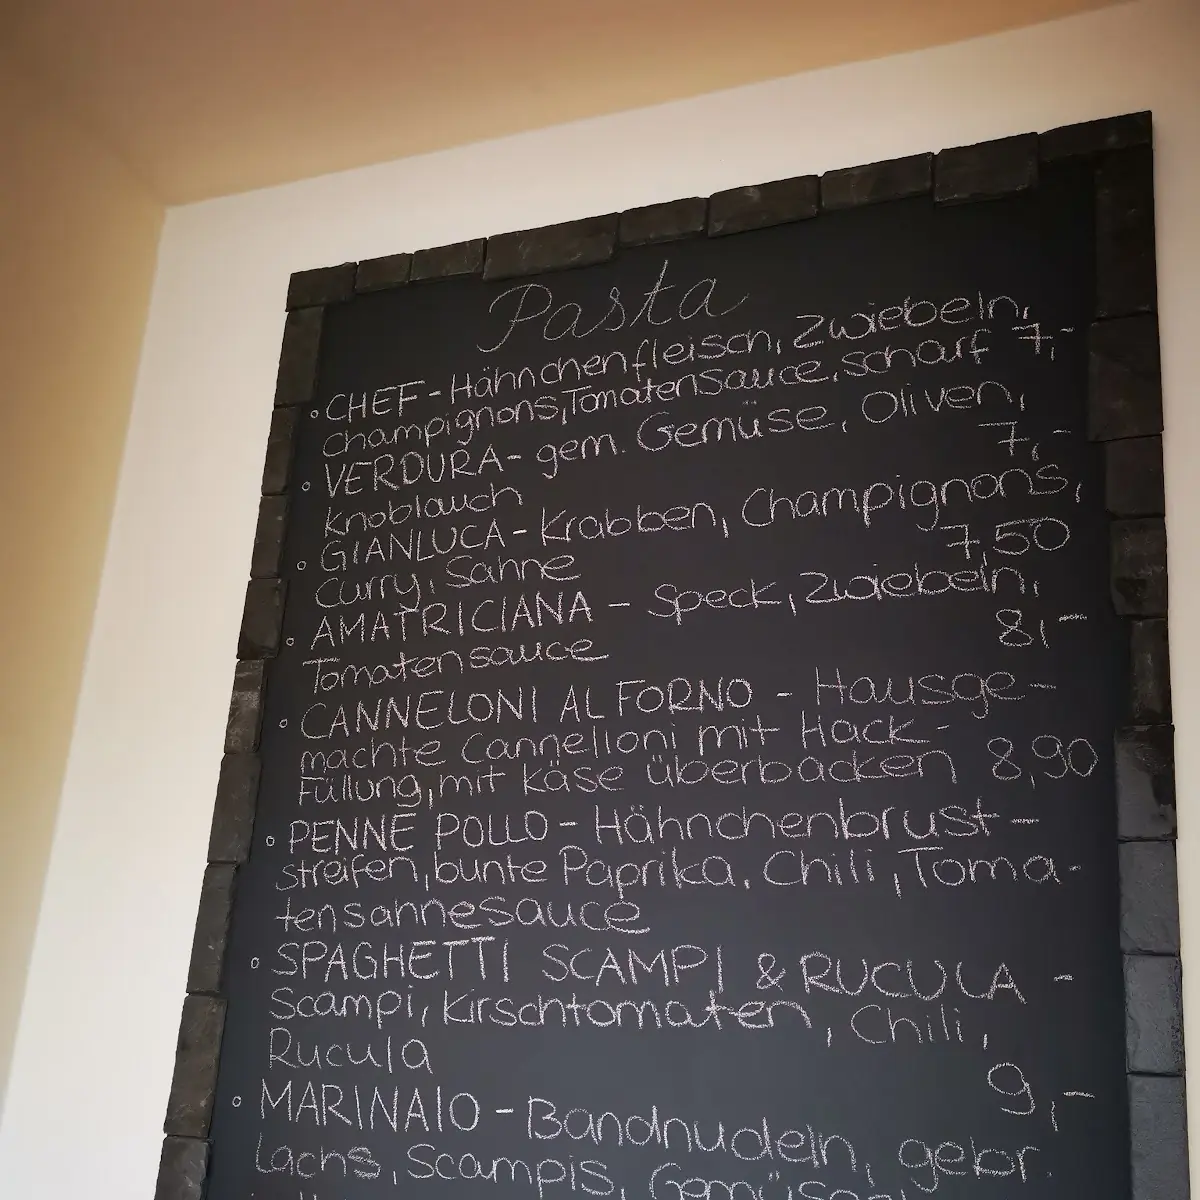 Pasta
CHEF - Hähnchenfleisch, Zwiebeln,
Champignons, Tomatensauce, scharf 7,-
VERDURA - gem. Gemüse, Oliven,
Knoblauch 7,-
GIANLUCA - Krabben, Champignons,
Curry, Sahne 7,50
AMATRICIANA - Speck, Zwiebeln,
Tomatensauce 8,-
CANNELONI AL FORNO - Hausge-
machte Cannelloni mit Hack-
Füllung, mit Käse überbacken 8,90
PENNE POLLO - Hähnchenbrust-
streifen, bunte Paprika, Chili, Toma-
tensahnesauce
SPAGHETTI SCAMPI & RUCULA -
Scampi, Kirschtomaten, Chili,
Rucula 9,-
MARINAIO - Bandnudeln, gebr.
Lachs, Scampis,